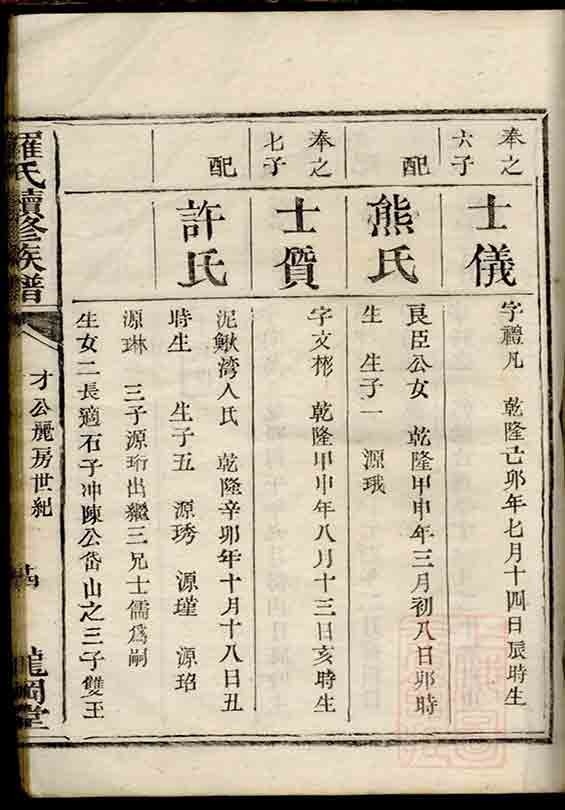 奉之
六子
士儀
字禮凡 乾隆己卯年七月十四日辰時生
配
熊氏
良臣公女 乾隆甲申年三月初八日卯時
生 生子一 源珴
奉之
七子
士質
字文彬 乾隆甲申年八月十三日亥時生
配
許氏
泥鰍湾人氏 乾隆辛卯年十月十八日丑
時生 生子五 源琇 源瑾 源玿
源琳 三子源珩出繼三兄士儒爲嗣
生女二長適石子冲陳公岱山之三子雙玉
羅氏續修族譜
才公麗房世紀
龍岡堂